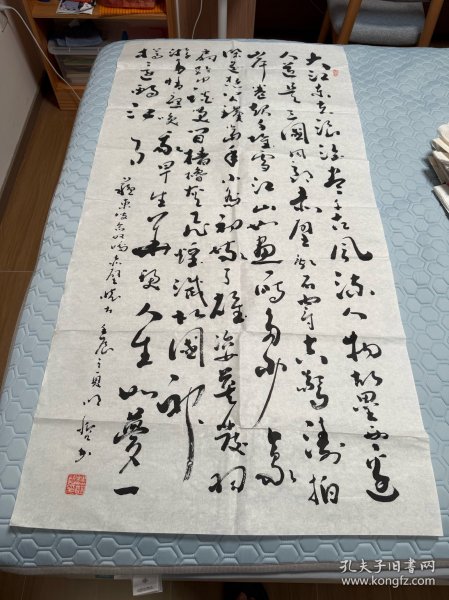 大江东去浪淘尽千古风流人物故垒西边
人道是三國周郎赤壁乱石穿空惊涛拍
岸卷起千堆雪江山如画一时多少豪
杰遥想公瑾当年小乔初嫁了雄姿英发羽
扇纶巾谈笑间樯橹灰飞烟灭故國神
游多情应笑我早生华发人生如梦一
尊还酹江月
苏东坡念奴娇赤壁怀古 壬辰之夏
孔夫子旧书网
www.kongfz.com